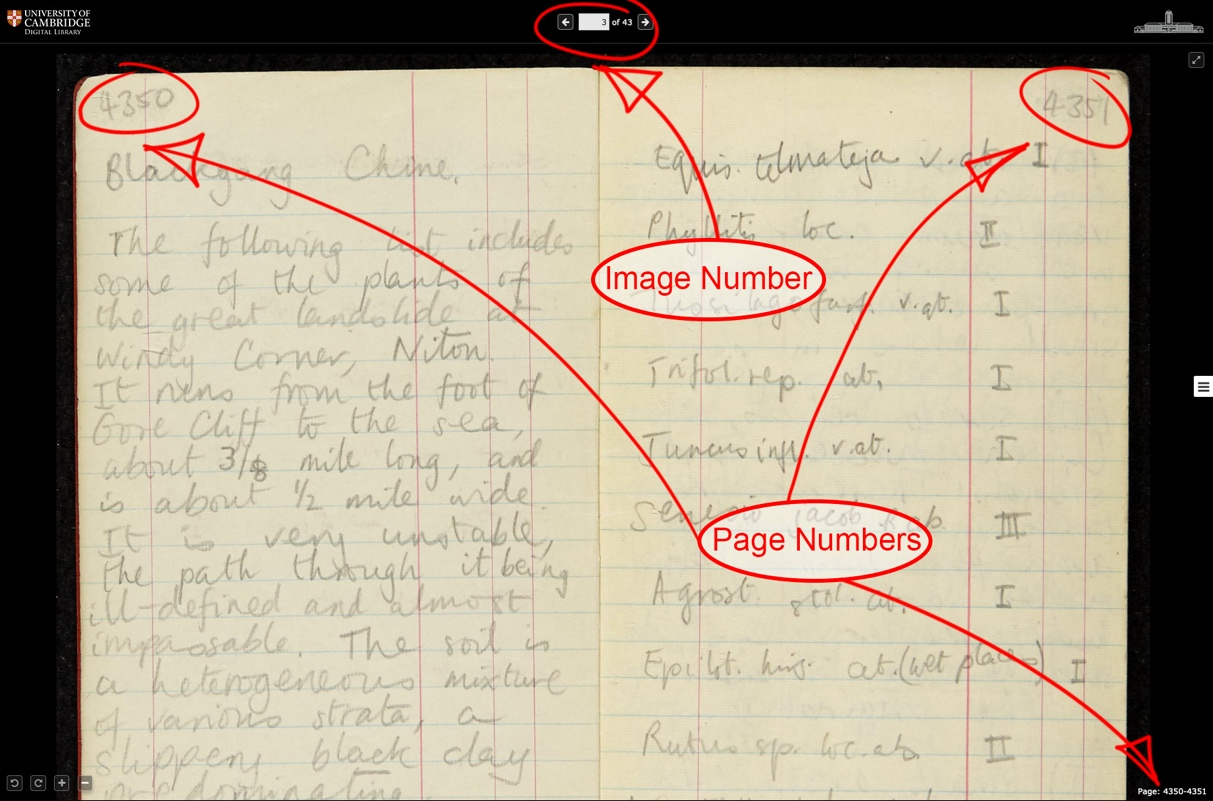 UNIVERSITY OF
CAMBRIDGE
DIGITAL LIBRARY
3 of 43
4350
Blackgang Chine.
The following list includes
some of the plants of
the great landslide at
Windy Corner, Niton.
It runs from the foot of
Gore Cliff to the sea,
about 3/8 mile long, and
is about 1/2 mile wide.
It is very unstable,
the path through it being
ill-defined and almost
impassable. The soil is
a heterogeneous mixture
of various strata, a
slippery black clay
predominating.
4351
Equis. telmateja v. ab. I
Phyllitis loc. II
Image Number
Tussilago farf. v. ab. I
Trifol. rep. ab. I
Juncus infl. v. ab. I
Senecio jacob ab. III
Page Numbers
Agrost. stol. ab. I
Epilob. hirs. ab. (wet places) I
Rubus sp. loc. ab. II
Page: 4350-4351